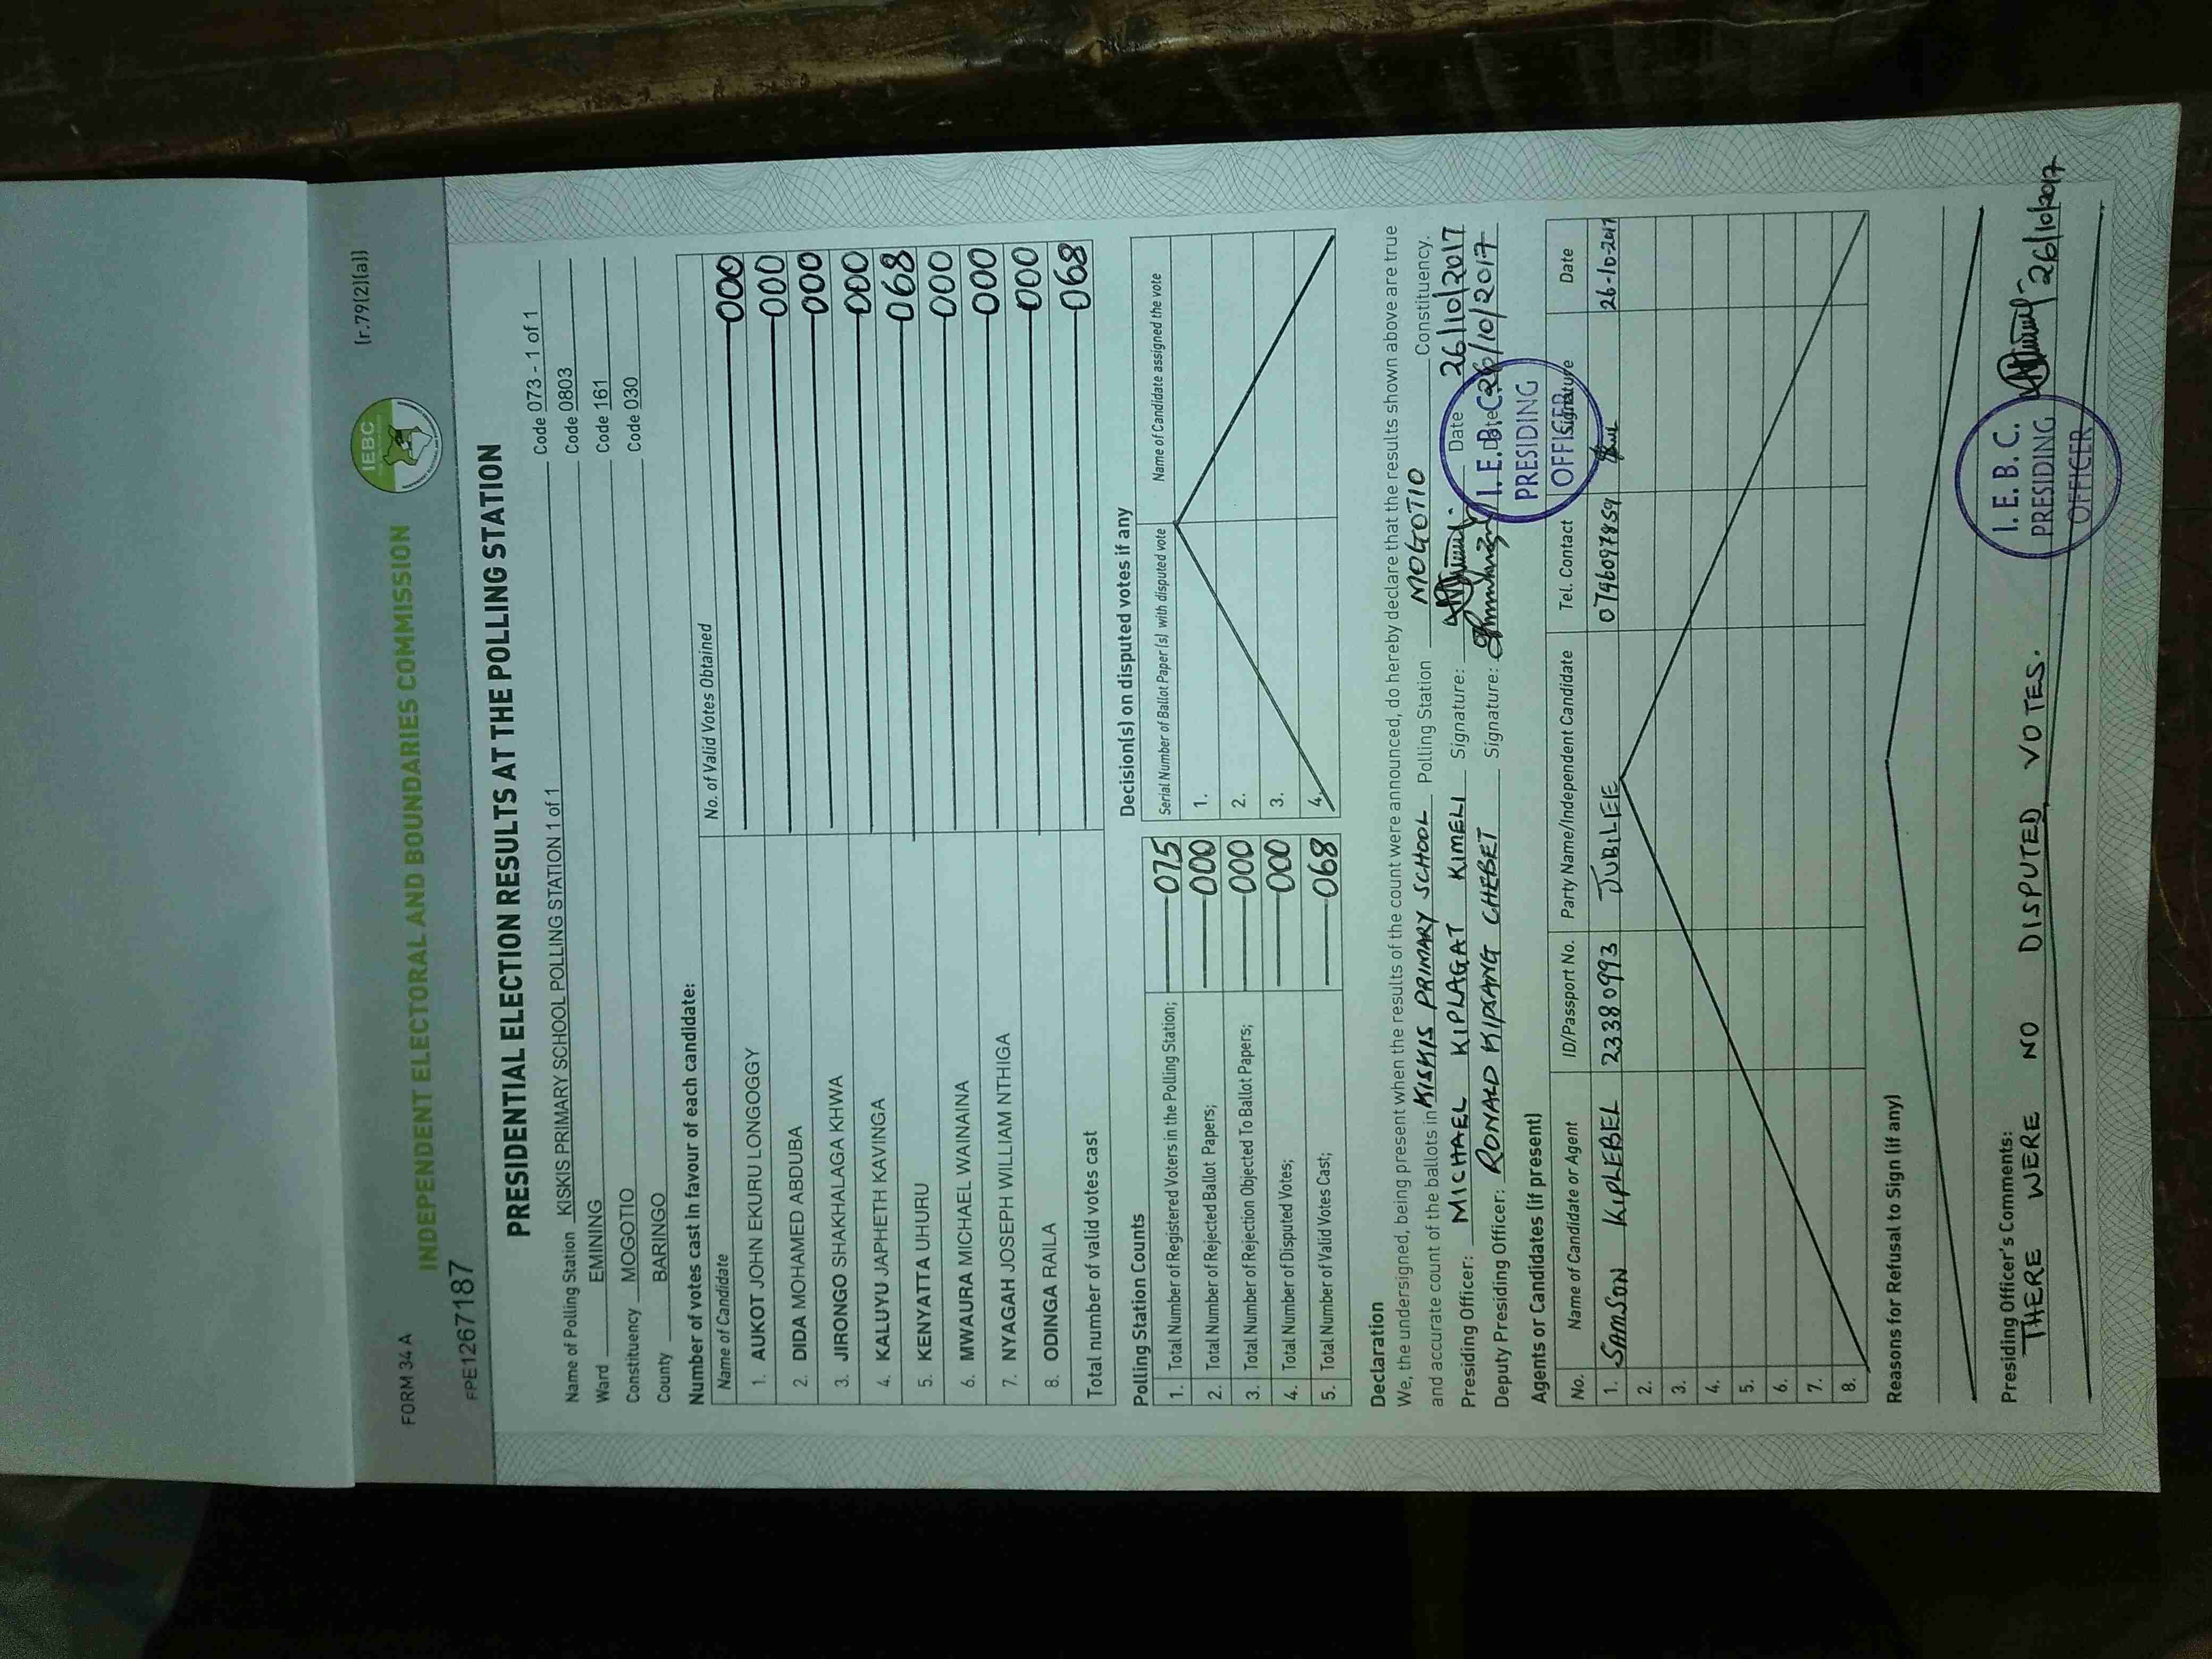 FORM 34 A
(r.79(2)(a))
IEBC
INDEPENDENT ELECTORAL AND BOUNDARIES COMMISSION
FPE1267187
PRESIDENTIAL ELECTION RESULTS AT THE POLLING STATION
Name of Polling Station KISKIS PRIMARY SCHOOL POLLING STATION 1 of 1 Code 073 - 1 of 1
Ward EMINING Code 0803
Constituency MOGOTIO Code 161
County BARINGO Code 030
Number of votes cast in favour of each candidate:
Name of Candidate No. of Valid Votes Obtained
1. AUKOT JOHN EKURU LONGOGGY 000
2. DIDA MOHAMED ABDUBA 000
3. JIRONGO SHAKHALAGA KHWA 000
4. KALUYU JAPHETH KAVINGA 000
5. KENYATTA UHURU 068
6. MWAURA MICHAEL WAINAINA 000
7. NYAGAH JOSEPH WILLIAM NTHIGA 000
8. ODINGA RAILA 000
Total number of valid votes cast 068
Polling Station Counts
1. Total Number of Registered Voters in the Polling Station; 075
2. Total Number of Rejected Ballot Papers; 000
3. Total Number of Rejection Objected To Ballot Papers; 000
4. Total Number of Disputed Votes; 000
5. Total Number of Valid Votes Cast; 068
Decision(s) on disputed votes if any
Serial Number of Ballot Paper (s) with disputed vote Name of Candidate assigned the vote
1.
2.
3.
4.
Declaration
We, the undersigned, being present when the results of the count were announced, do hereby declare that the results shown above are true
and accurate count of the ballots in KISKIS PRIMARY SCHOOL Polling Station MOGOTIO Constituency.
Presiding Officer: MICHAEL KIPLAGAT KIMELI Signature: Date 26/10/2017
Deputy Presiding Officer: RONALD KIPSANG CHEBET Signature: Date 26/10/2017
I.E.B.C.
PRESIDING
OFFICER
Agents or Candidates (if present)
No. Name of Candidate or Agent ID/Passport No. Party Name/Independent Candidate Tel. Contact Signature Date
1. SAMSON KIPLEBEL 23380993 JUBILEE 0746097859 26-10-2017
2.
3.
4.
5.
6.
7.
8.
Reasons for Refusal to Sign (if any)
Presiding Officer's Comments:
THERE WERE NO DISPUTED VOTES. 26/10/2017
I.E.B.C.
PRESIDING
OFFICER